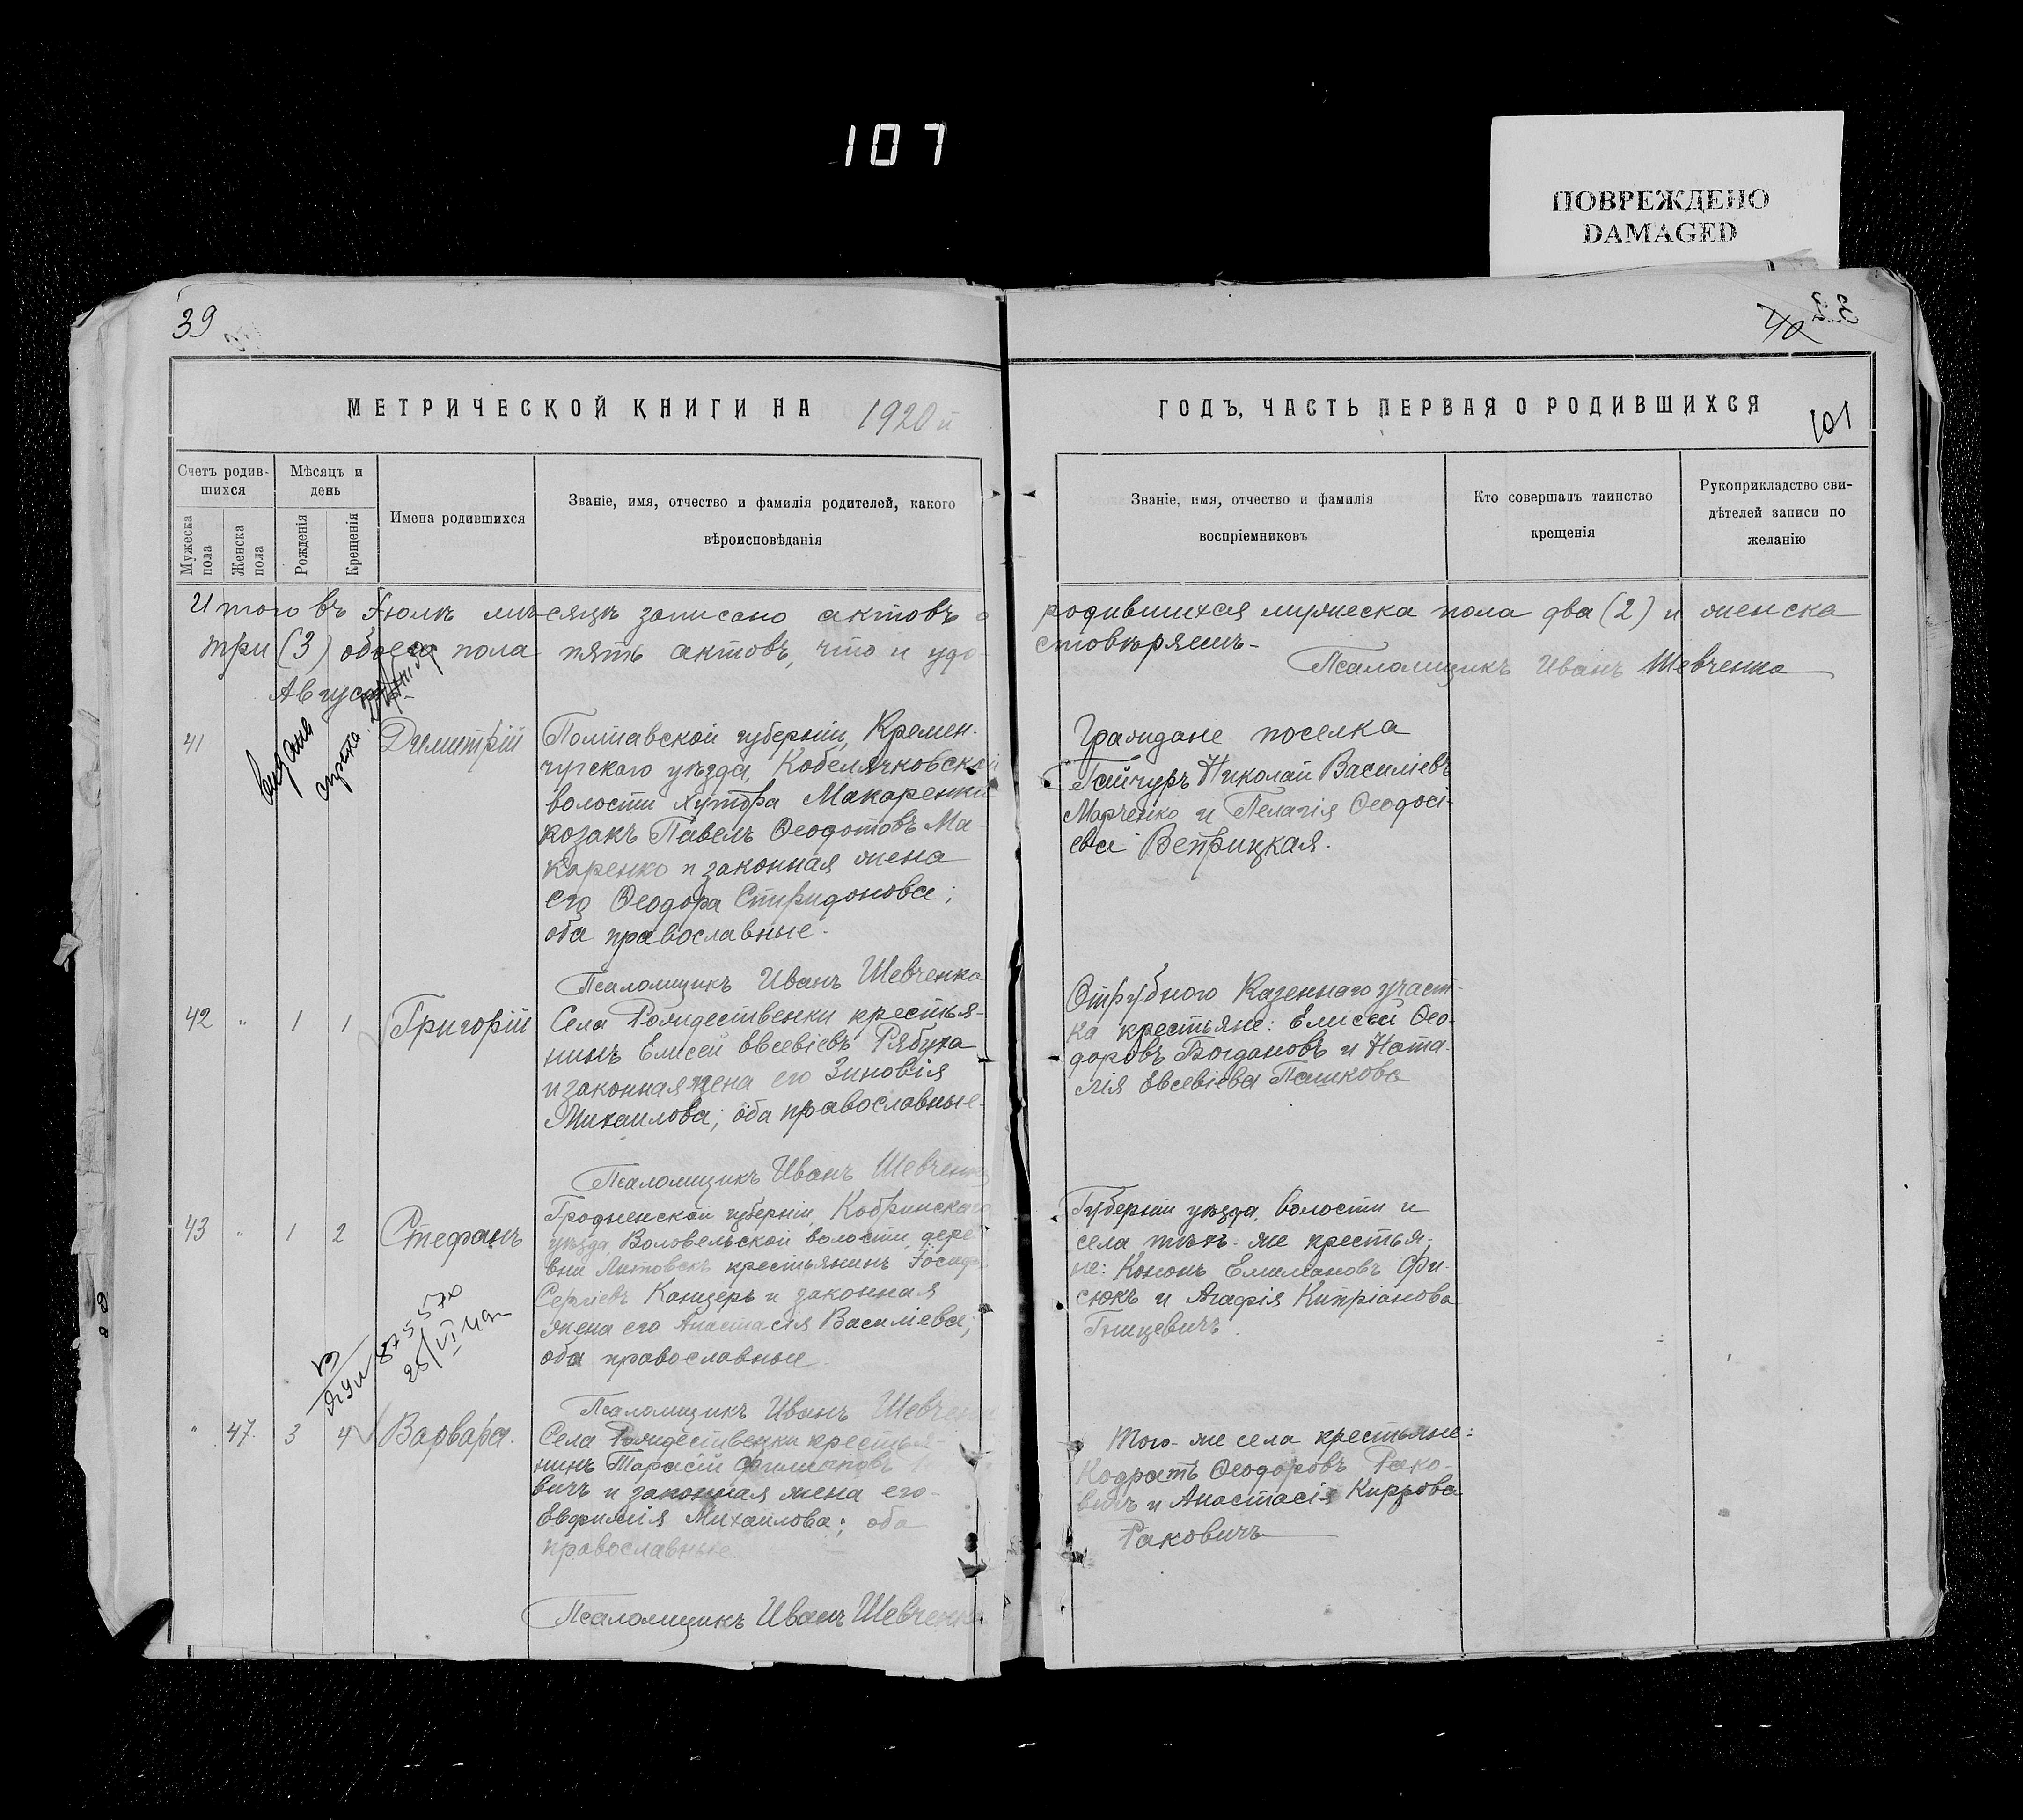 107
ПОВРЕЖДЕНО
DAMAGED
39
40
101
МЕТРИЧЕСКОЙ КНИГИ НА 1920 й
ГОДЪ, ЧАСТЬ ПЕРВАЯ О РОДИВШИХСЯ
Счетъ родив-
шихся
Мужеска пола
Женска пола
Мѣсяцъ и
день
Рожденія
Крещенія
Имена родившихся
Званіе, имя, отчество и фамилія родителей, какого
вѣроисповѣданія
Званіе, имя, отчество и фамилія
воспріемниковъ
Кто совершалъ таинство
крещенія
Рукоприкладство сви-
дѣтелей записи по
желанію
Итого въ Іюлѣ мѣсяцѣ записано актовъ о родившихся мужеска пола два (2) и женска
три (3) обоего пола пять актовъ, что и удо-
стовѣряемъ-
Псаломщикъ Иванъ Шевченко
Августъ
Выданъ
41
Димитрій
Полтавской губерніи, Кремен-
чугскаго уѣзда, Кобелячковской
волости хутора Макаренки
козакъ Павелъ Ѳеодотовъ Ма-
каренко и законная жена
его Ѳеодора Спиридонова;
оба православные.
Псаломщикъ Иванъ Шевченко
Граждане поселка
Гайчуръ Николай Василіевъ
Марченко и Пелагія Ѳеодосі-
ева Ветрицкая.
42 " 1 1
Григорій
Села Рождественки крестья-
нинъ Елисей Евсевіевъ Рябуха
и законная жена его Зиновія
Михаилова; оба православные-
Псаломщикъ Иванъ Шевченко
Отрубного Казеннаго участ-
ка крестьяне: Елисей Ѳео-
доровъ Богдановъ и Ната-
лія Евсевіева Пашкова
43 " 1 2
Стефанъ
Гродненской губерніи, Кобринскаго
уѣзда, Воловельской волости, дере-
вни Литовскъ крестьянинъ Іосифъ
Сергіевъ Канцеръ и законная
жена его Анастасія Василіева;
оба православные.
Псаломщикъ Иванъ Шевченко
Губерніи уѣзда, волости и
села тѣхъ-же крестья-
не: Кононъ Емиліановъ Фи-
сюкъ и Агафія Кипріанова
Гницевичъ.
875570
" 47. 3 4
Варвара.
Села Рождественки крестья-
нинъ Тарасій Филипповъ
вичъ и законная жена его-
Евфимія Михаилова; оба
православные.
Псаломщикъ Иванъ Шевченко
Того-же села крестьяне:
Кодратъ Ѳеодоровъ Рако-
вичъ и Анастасія Кирова
Раковичъ